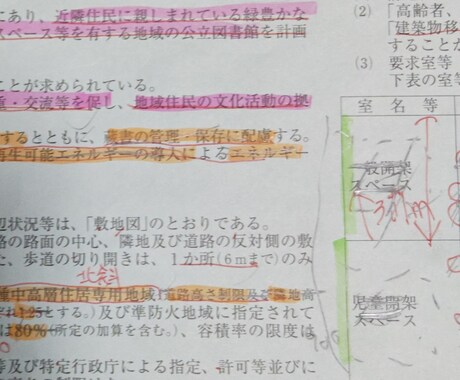 にあり、近隣住民に親しまれている緑豊かな
スペース等を有する地域の公立図書館を計画
ことが求められている。
・交流等を促し、地域住民の文化活動の拠
するとともに、蔵書の管理・保存に配慮する。
再生可能エネルギーの導入によるエネルギー
辺状況等は、「敷地図」のとおりである。
路の路面の中心、隣地及び道路の反対側の敷
た、歩道の切り開きは、1か所(6mまで)のみ
北斜
中高層住居専用地域
1.25とする。)及び準防火地域に指定されて
は80%(所定の加算を含む。)、容積率の限度は
等及び特定行政庁による指定、許可等並びに
(2) 「高齢者、
「建築物移
することが
(3) 要求室等
下表の室等
室名等
一般開架
スペース
児童開架
スペース